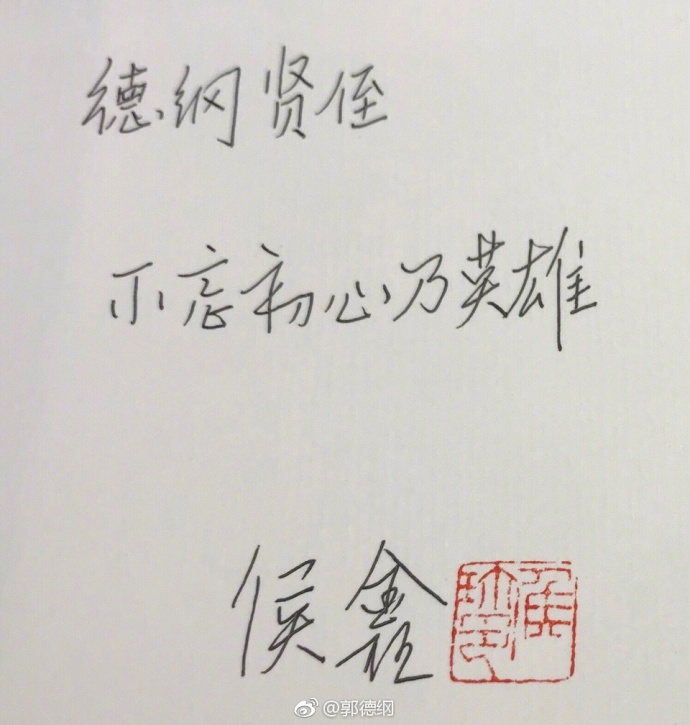 德纲贤侄
不忘初心乃英雄
侯鑫
@郭德纲